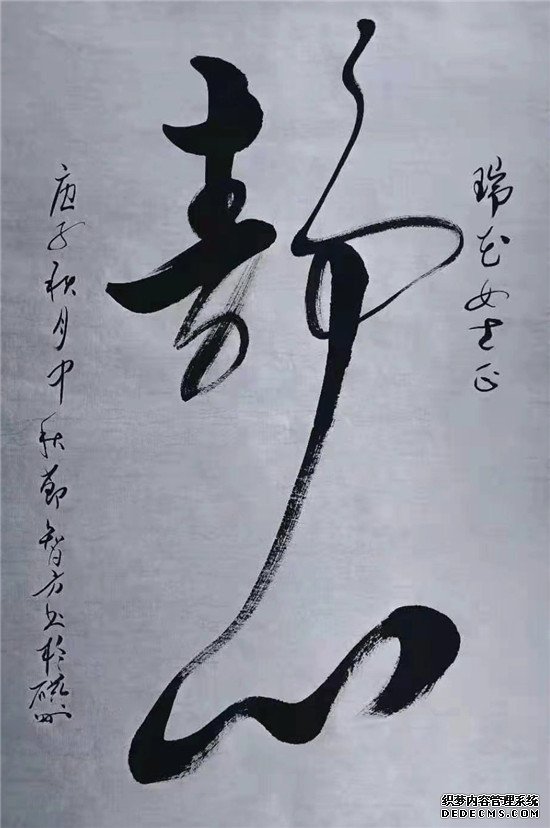 瑞花女士正
静心
庚子秋月中秋节智方书於磁州
织梦内容管理系统
DEDECMS.COM